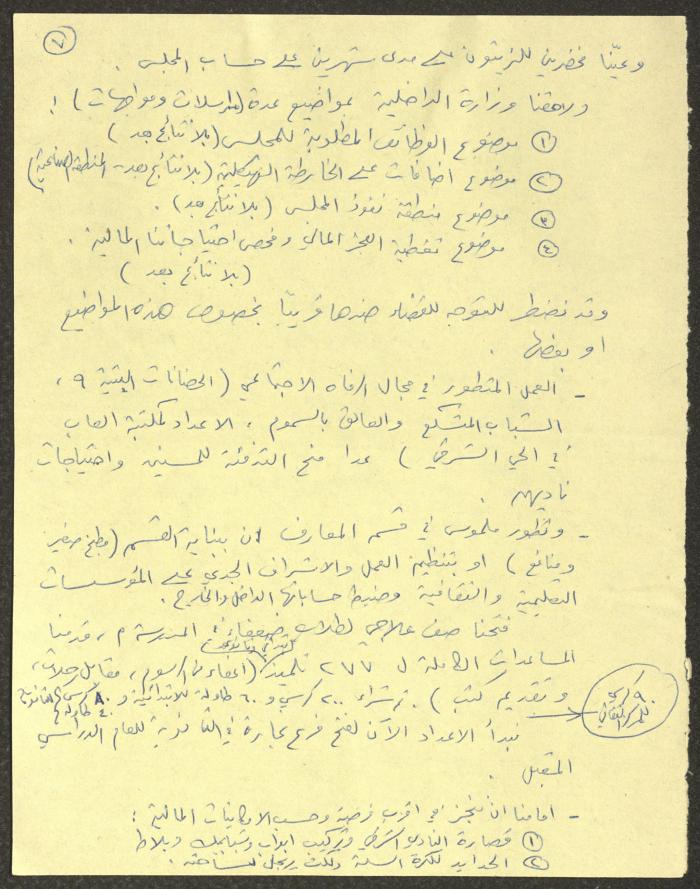 ٧
وعيّنا مخضرين للزيتون على مدى شهرين على حساب المجلس .
ولاحقنا وزارة الداخلية بمواضيع عدة (مراسلات ومواجهات) :
١ موضوع الوظائف المطلوبة للمجلس (بلا نتائج بعد)
٢ موضوع اضافات على الخارطة الهيكلية (بلا نتائج بعد - المنطقة الصناعية)
٣ موضوع منطقة نفوذ المجلس (بلا نتائج بعد) .
٤ موضوع تغطية العجز المالي وفحص احتياجاتنا المالية .
(بلا نتائج بعد)
وقد نضطر للتوجه للقضاء ضدها قريبًا بخصوص هذه المواضيع
او بعضها .
- العمل المتطور في مجال الرفاه الاجتماعي (الحضانات البيتية ٩ ،
الشباب المتسكع والعالق بالسموم ، الاعداد لمكتبة العاب
في الحي الشرقي) عدا منح التدفئة للمسنين واحتياجات
ناديهم .
- وتطور ملموس في قسم المعارف ان ببناية القسم (مطبخ صغير
ومنافع) او بتنظيم العمل والاشراف الجدي على المؤسسات
التعليمية والثقافية وضبط حساباتها الداخل والخارج .
فتحنا صف علاجي لطلاب ضعفاء في المدرسة م ، قدمنا
المساعدات الكاملة ل ٢٧٧ تلميذ (اعفاء من الرسوم ، مقابل
وتقديم كتب) . تم شراء ٢٠٠ كرسي و ٦٠ طاولة للابتدائية و ٨٠ كرسي
٤٠ طاولة
٩٠ كرسي
للمركز الثقافي
نبدأ الاعداد الآن لفتح فرع تجارة في الثانوية للعام الدراسي
المقبل .
- امامنا ان ننجز في اقرب فرصة وحسب الامكانيات المالية :
١ قصارة النادي الشرقي وتركيب ابواب وشبابيك وبلاط
٢ الحدايد للكرة السلة وذلك لساحته .